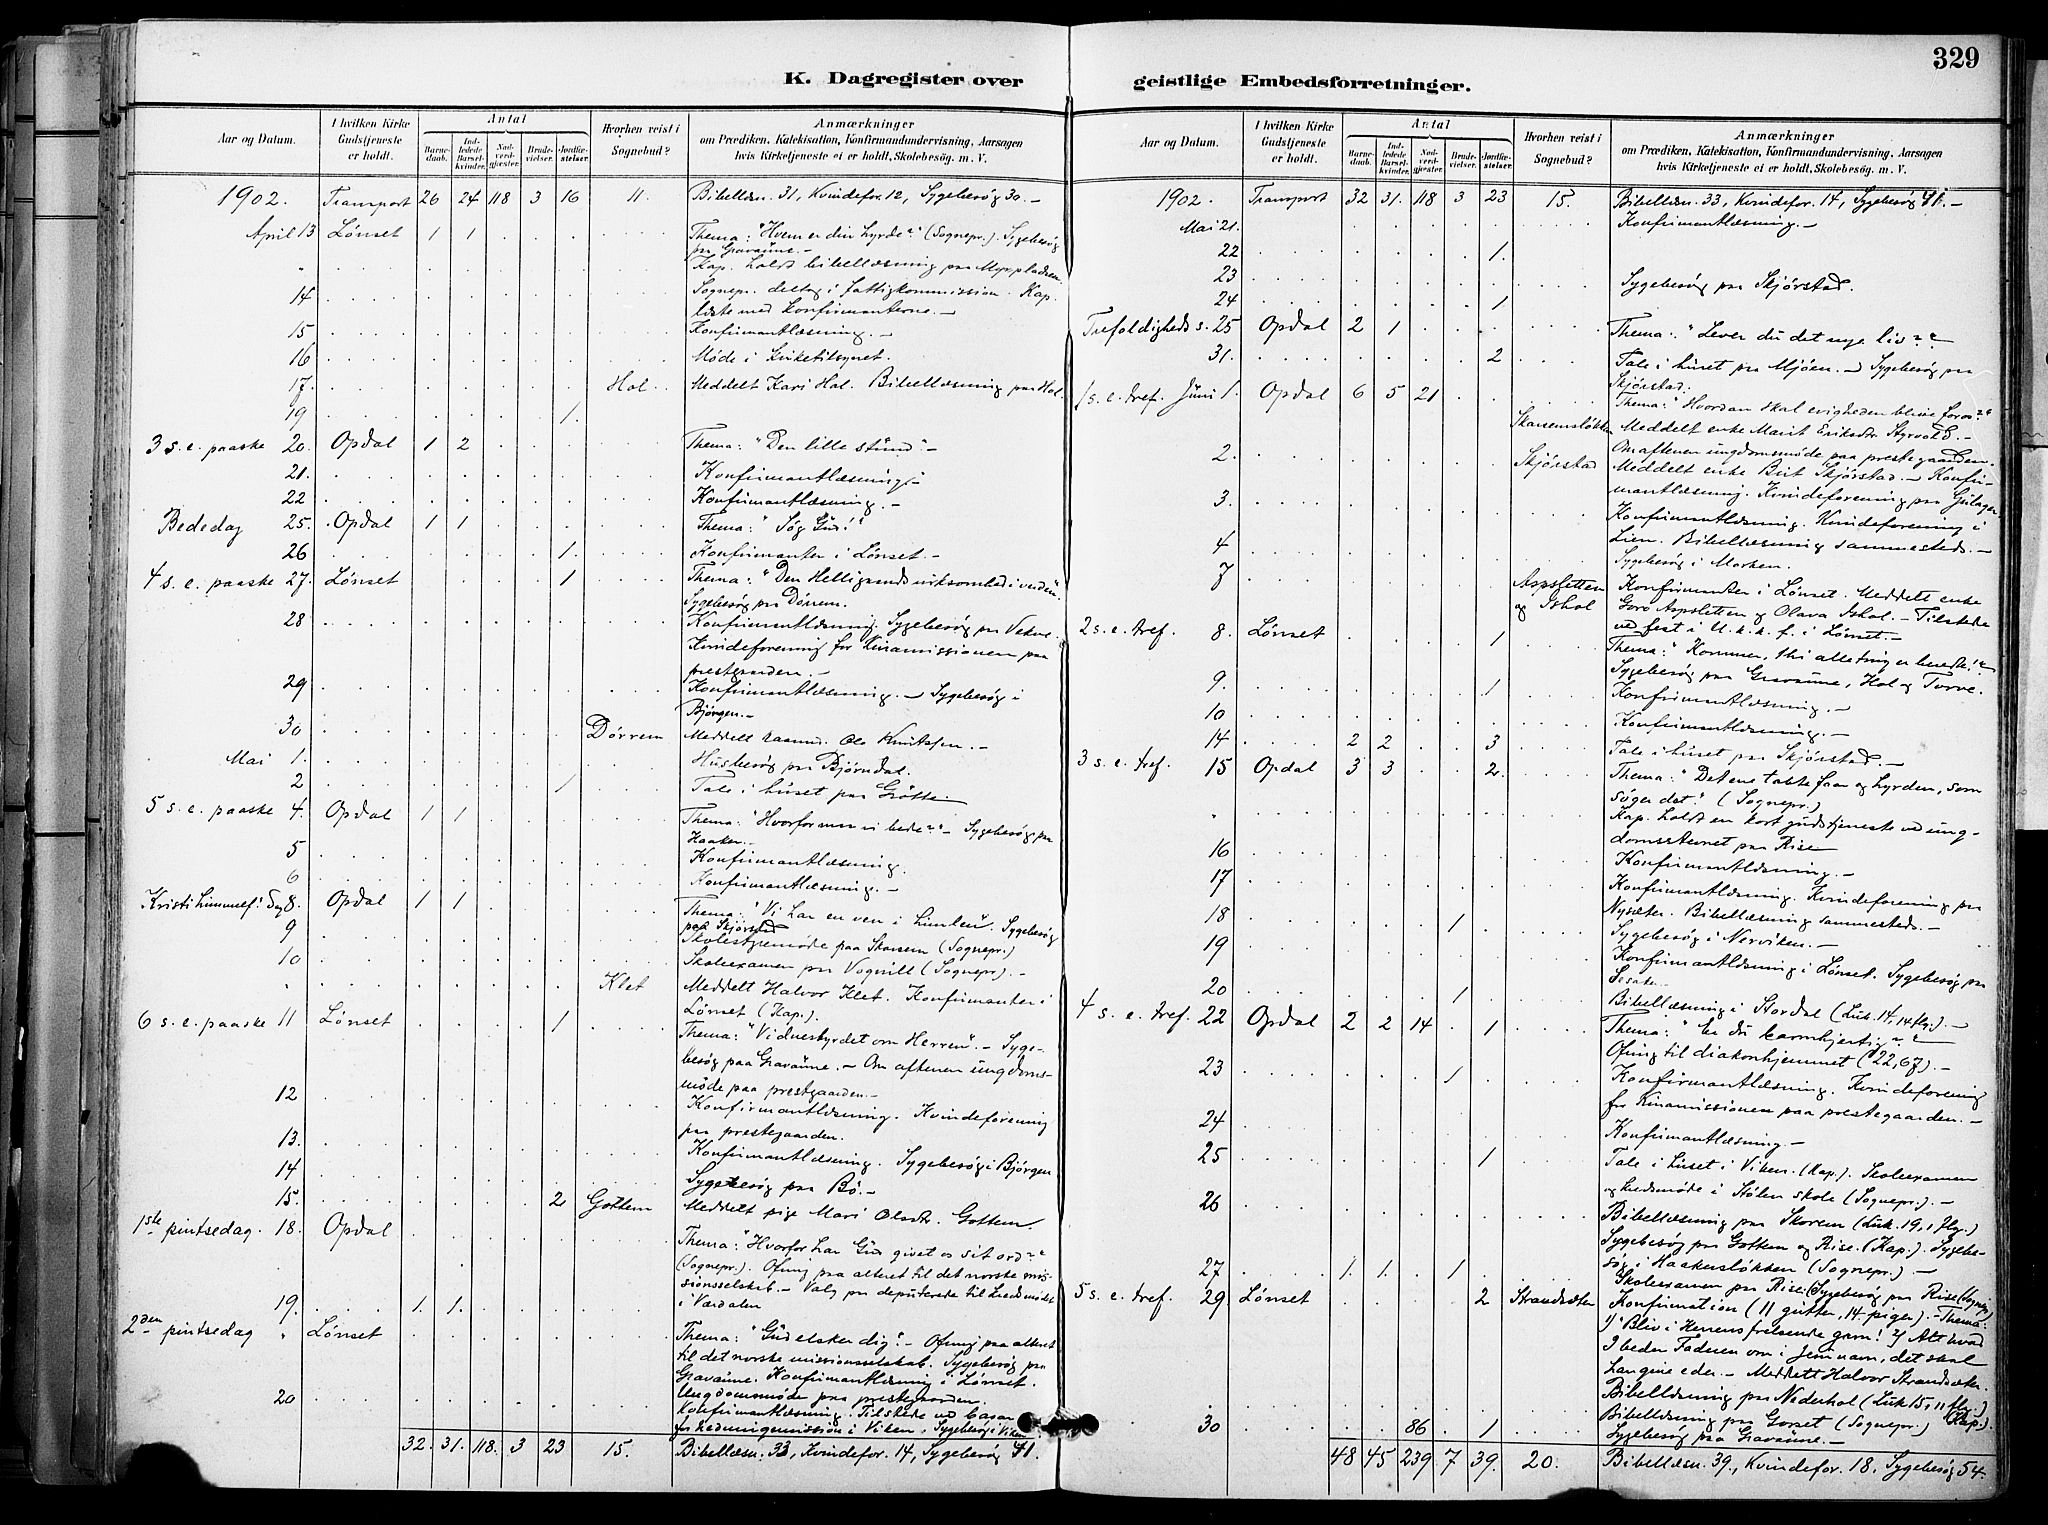 329
K. Dagregister over
geistlige Embedsforretninger.
Aar og Datum.
I hvilken Kirke Gudstjeneste er holdt.
Antal
Barnedaab.
Indledede Barselkvinder.
Nadverdgjester.
Brudevielser.
Jordfæstelser.
Hvorhen reist i Sognebud?
Anmærkninger
om Prædiken, Katekisation, Konfirmandundervisning, Aarsagen
hvis Kirketjeneste ei er holdt, Skolebesøg. m. V.
1902. Transport 26 24 118 3 16 11. Bibellæsn. 31, Kvindefor. 12, Sygebesøg 30. -
April 13 Lønset 1 1 Thema: "Hvem er din hyrde?" (Sognepr.). Sygebesøg
paa Gravaune. -
" Kap. holdt bibellæsning paa Myrpladsen.
14 Sognepr. deltog i fattigkommission. Kap.
læste med konfirmanterne. -
15 Konfirmantlæsning. -
16 Møde i kirketilsynet.
17. Hol. Meddelt Kari Hol. Bibellæsning paa Hol.
19 1.
3 s. e. paaske 20. Opdal 1 2 Thema: "Den lille stund". -
21. Konfirmantlæsning. -
22 Konfirmantlæsning. -
Bededag 25. Opdal 1 1 Thema: "Søg Gud!"
26 1. Konfirmanter i Lønset. -
4 s. e. paaske 27. Lønset 1 Thema: "Den Helligaands virksomhed i verden".
Sygebesøg paa Dørrem.
28 Konfirmantlæsning. Sygebesøg paa Vekve.
Kvindeforening for Kinamissionen paa
prestgaarden. -
29 Konfirmantlæsning. - Sygebesøg i
Bjørgen. -
30 Dørrem Meddelt Ole Knutssen. -
Mai 1. Husbesøg paa Bjørndal.
2 1 Tale i huset paa Grøtte.
5 s. e. paaske 4. Opdal 1 1 Thema: "Hvorfor maa vi bede?" - Sygebesøg paa
Haaker. -
5 Konfirmantlæsning.
6 Konfirmantlæsning. -
Kristi himmelf. dag 8. Opdal 1 1 Thema: "Vi har en ven i himlen". Sygebesøg
paa Skjørstad
9 Skolestyremøde paa Skansen (Sognepr.)
10 Skoleexamen paa Vognill (Sognepr.). -
" Klet Meddelt Halvor Klet. Konfirmanter i
Lønset (Kap.).
6 s. e. paaske 11 Lønset 1 Thema: "Vidnesbyrdet om Herren". - Syge-
besøg paa Gravaune. - Om aftenen ungdoms-
møde paa prestgaarden. -
12 Konfirmantlæsning. Kvindeforening
paa prestegaarden.
13. Konfirmantlæsning. Sygebesøg i Bjørgen
14 Sygebesøg paa Bø. -
15. 2 Gottem Meddelt pige Mari Olsdtr. Gottem
1ste pintsedag. 18. Opdal Thema: "Hvorfor har Gud givet os sit ord?"
(Sognepr.). Ofring paa alteret til det norske mis-
sionsselskab. - Valg paa deputerede til kredsmødet
19. 1. 1. i Værdalen
2den pintsedag " Lønset Thema: "Gud elsker dig". - Ofring paa alteret
til det norske missionsselskab. Sygebesøg paa
Gravaune. Konfirmantlæsning i Lønset.
Ungdomsmøde paa prestegaarden.
20 Konfirmantlæsning. Tilstede ved basar
for hedningemissionen i Viken. Sygebesøg i Viken
32. 31. 118. 3 23 15. Bibellæsn. 33, Kvindefor. 14, Sygebesøg 41.
Aar og Datum.
I hvilken Kirke Gudstjeneste er holdt.
Antal
Barnedaab.
Indledede Barselkvinder.
Nadverdgjester.
Brudevielser.
Jordfæstelser.
Hvorhen reist i Sognebud?
Anmærkninger
om Prædiken, Katekisation, Konfirmandundervisning, Aarsagen
hvis Kirketjeneste ei er holdt, Skolebesøg. m. V.
1902. Transport 32 31. 118 3 23 15. Bibellæsn. 33, Kvindefor. 14, Sygebesøg 41. -
Mai 21. Konfirmantlæsning. -
22 1.
23 Sygebesøg paa Skjørstad.
24 1
Trefoldigheds s. 25 Opdal 2 1 Thema: "Lever du det nye liv?"
31. 2 Tale i huset paa Mjøen. - Sygebesøg paa
Skjørstad.
1 s. e. tref. Juni 1. Opdal 6 5 21 Thema: "Hvordan skal evigheden blive for os?"
Skarremsløkken Meddelt enke Marit Eriksdtr. Styrvold. -
Om aftenen ungdomsmøde paa prestegaarden.
2. Skjørstad Meddelt enke Brit Skjørstad. - Konfir-
mantlæsning. Kvindeforening paa Gulager.
3. Konfirmantlæsning. Kvindeforening i
Lien. Bibellæsning sammesteds. -
4 Sygebesøg i Morken.
7 Aspsletten og Ishol Konfirmanter i Lønset. Meddelt enke
Goro Aspsletten og Olava Ishol. - Tilstede
ved fest i U. k. k. f. i Lønset. -
2 s. e. tref. 8. Lønset 1 Thema: "Kommer, thi alleting er beredt!"
Sygebesøg paa Gravaune, Hol og Torve.
9. 1 Konfirmantlæsning. -
10 Konfirmantlæsning. -
14 2 2 3 Tale i huset paa Skjørstad. -
3 s. e. tref. 15 Opdal 3 3 2. Thema: "Det ene tabte faar og hyrden, som
søger det". (Sognepr.)
" Kap. holdt en kort gudstjeneste ved ung-
domsstevnet paa Rise
16 Konfirmantlæsning. -
17 Konfirmantlæsning. Kvindeforening paa
Nysæter. Bibellæsning sammesteds. -
18 1 Sygebesøg i Nerviken. -
19 Konfirmantlæsning i Lønset. Sygebesøg paa
20 1 Bibellæsning i Stordal (Luk. 14, 14 flg.). -
4 s. e. tref. 22 Opdal 2 2 14 1 Thema: "Er du barmhjertig?"
Ofring til diakonhjemmet (22,67). -
23 1 Konfirmantlæsning. Kvindeforening
for Kinamissionen paa prestegaarden. -
24 Konfirmantlæsning. -
25 1 Tale i huset i Viken. (Kap.). Skoleexamen
og kredsmøde i Stølen skole (Sognepr.). -
26 Bibellæsning paa Skorem (Luk. 19, 1 flg.)
Sygebesøg paa Gottem og Rise. (Kap.). Sygebe-
søg i Haakersløkken (Sognepr.). -
27 1. 1. 1. Skoleexamen paa Rise. (Sygebesøg paa Rise (Sognepr.)
5 s. e. tref. 29. Lønset 2 Strandsæter Konfirmation (11 gutter, 14 piger). - Thema:
1) "Bliv i Herrens frelsende garn! 2) Alt hvad
I beder Faderen om i Jesu navn, det skal
han give eder. - Meddelt Halvor Strandsæter.
Bibellæsning paa Nederhol (Luk 15, 11 flg.)
(Kap.)
30 86 1 Bibellæsning paa Gorset (Sognepr.)
Sygebesøg paa Gravaune. -
48 45 239 7 39. 20. Bibellæsn. 39., Kvindefor. 18, Sygebesøg 54.